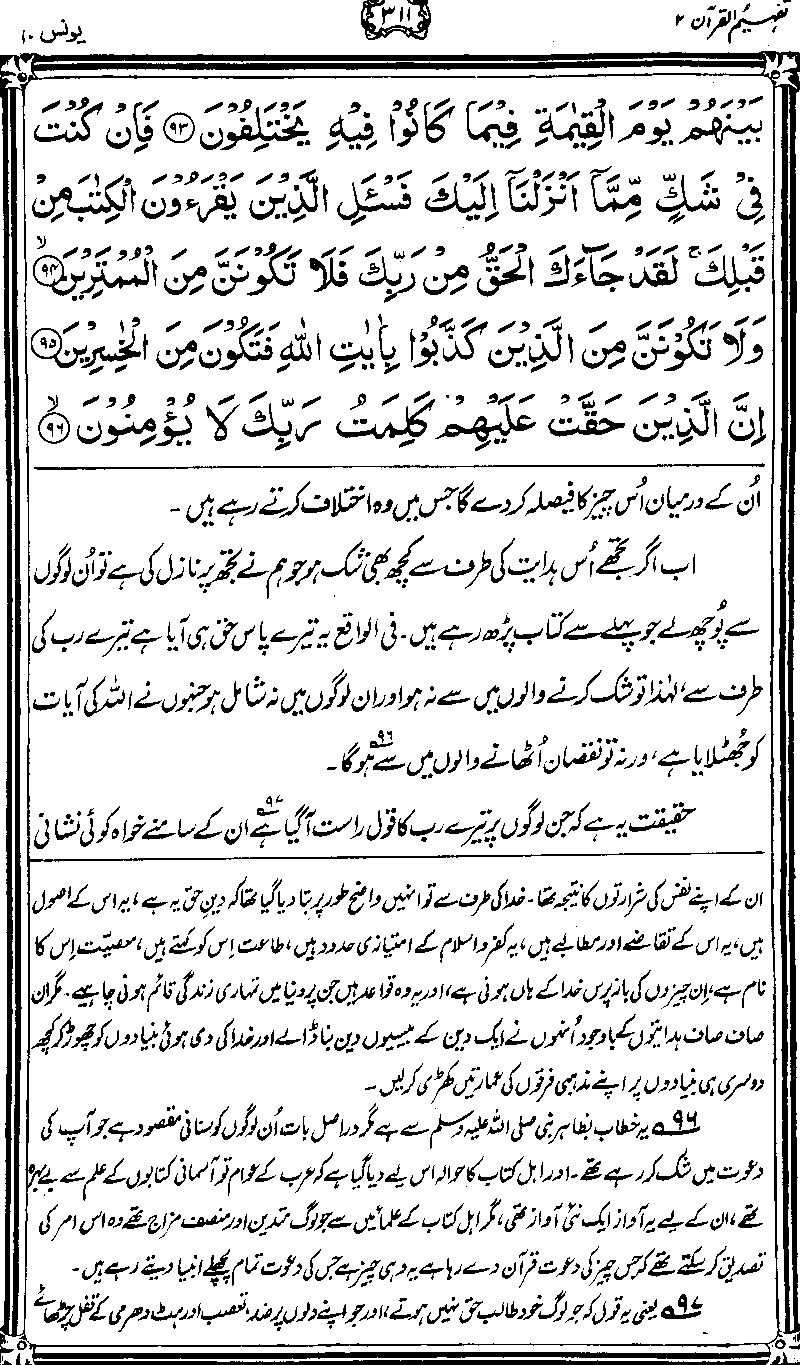 تفہیم القرآن ۲
۳۱۱
یونس ۱۰
بَيْنَهُمْ يَوْمَ الْقِيٰمَةِ فِيْمَا كَانُوْا فِيْهِ يَخْتَلِفُوْنَ ﴿۹۳﴾ فَاِنْ كُنْتَ
فِيْ شَكٍّ مِّمَّآ اَنْزَلْنَآ اِلَيْكَ فَسْـَٔلِ الَّذِيْنَ يَقْرَءُوْنَ الْكِتٰبَ مِنْ
قَبْلِكَ ۚ لَقَدْ جَآءَكَ الْحَقُّ مِنْ رَّبِّكَ فَلَا تَكُوْنَنَّ مِنَ الْمُمْتَرِيْنَ ﴿۹۴﴾ۙ
وَلَا تَكُوْنَنَّ مِنَ الَّذِيْنَ كَذَّبُوْا بِاٰيٰتِ اللّٰهِ فَتَكُوْنَ مِنَ الْخٰسِرِيْنَ ﴿۹۵﴾
اِنَّ الَّذِيْنَ حَقَّتْ عَلَيْهِمْ كَلِمَتُ رَبِّكَ لَا يُؤْمِنُوْنَ ﴿۹۶﴾ۙ
اُن کے درمیان اُس چیز کا فیصلہ کر دے گا جس میں وہ اختلاف کرتے رہے ہیں۔
اب اگر تجھے اُس ہدایت کی طرف سے کچھ بھی شک ہو جو ہم نے تجھ پر نازل کی ہے تو اُن لوگوں
سے پُوچھ لے جو پہلے سے کتاب پڑھ رہے ہیں۔ فی الواقع یہ تیرے پاس حق ہی آیا ہے تیرے رب کی
طرف سے، لہٰذا تو شک کرنے والوں میں سے نہ ہو اور ان لوگوں میں نہ شامل ہو جنہوں نے اللہ کی آیات
کو جُھٹلایا ہے، ورنہ تو نقصان اُٹھانے والوں میں سے ہوگا۹۶۔
حقیقت یہ ہے کہ جن لوگوں پر تیرے رب کا قول راست آگیا ہے۹۷ ان کے سامنے خواہ کوئی نشانی
ان کے اپنے نفس کی شرارتوں کا نتیجہ تھا۔ خدا کی طرف سے تو انہیں واضح طور پر بتا دیا گیا تھا کہ دینِ حق یہ ہے، یہ اس کے اصول
ہیں، یہ اس کے تقاضے اور مطالبے ہیں، یہ کفر و اسلام کے امتیازی حدود ہیں، طاعت اِس کو کہتے ہیں، معصیت اِس کا
نام ہے، اِن چیزوں کی باز پرس خدا کے ہاں ہونی ہے، اور یہ وہ قواعد ہیں جن پر دنیا میں تمہاری زندگی قائم ہونی چاہیے۔ مگر ان
صاف صاف ہدایتوں کے باوجود اُنہوں نے ایک دین کے بیسیوں دین بنا ڈالے اور خدا کی دی ہوئی بنیادوں کو چھوڑ کر کچھ
دوسری ہی بنیادوں پر اپنے مذہبی فرقوں کی عمارتیں کھڑی کر لیں۔
۹۶ یہ خطاب بظاہر نبی صلی اللہ علیہ وسلم سے ہے مگر دراصل بات اُن لوگوں کو سنانی مقصود ہے جو آپ کی
دعوت میں شک کر رہے تھے۔ اور اہل کتاب کا حوالہ اس لیے دیا گیا ہے کہ عرب کے عوام تو آسمانی کتابوں کے علم سے بے بہرہ
تھے، ان کے لیے یہ آواز ایک نئی آواز تھی، مگر اہل کتاب کے علماء میں سے جو لوگ متدین اور منصف مزاج تھے وہ اس امر کی
تصدیق کر سکتے تھے کہ جس چیز کی دعوت قرآن دے رہا ہے یہ وہی چیز ہے جس کی دعوت تمام پچھلے انبیا دیتے رہے ہیں۔
۹۷ یعنی یہ قول کہ جو لوگ خود طالب حق نہیں ہوتے، اور جو اپنے دلوں پر ضد، تعصب اور ہٹ دھرمی کے قفل چڑھائے